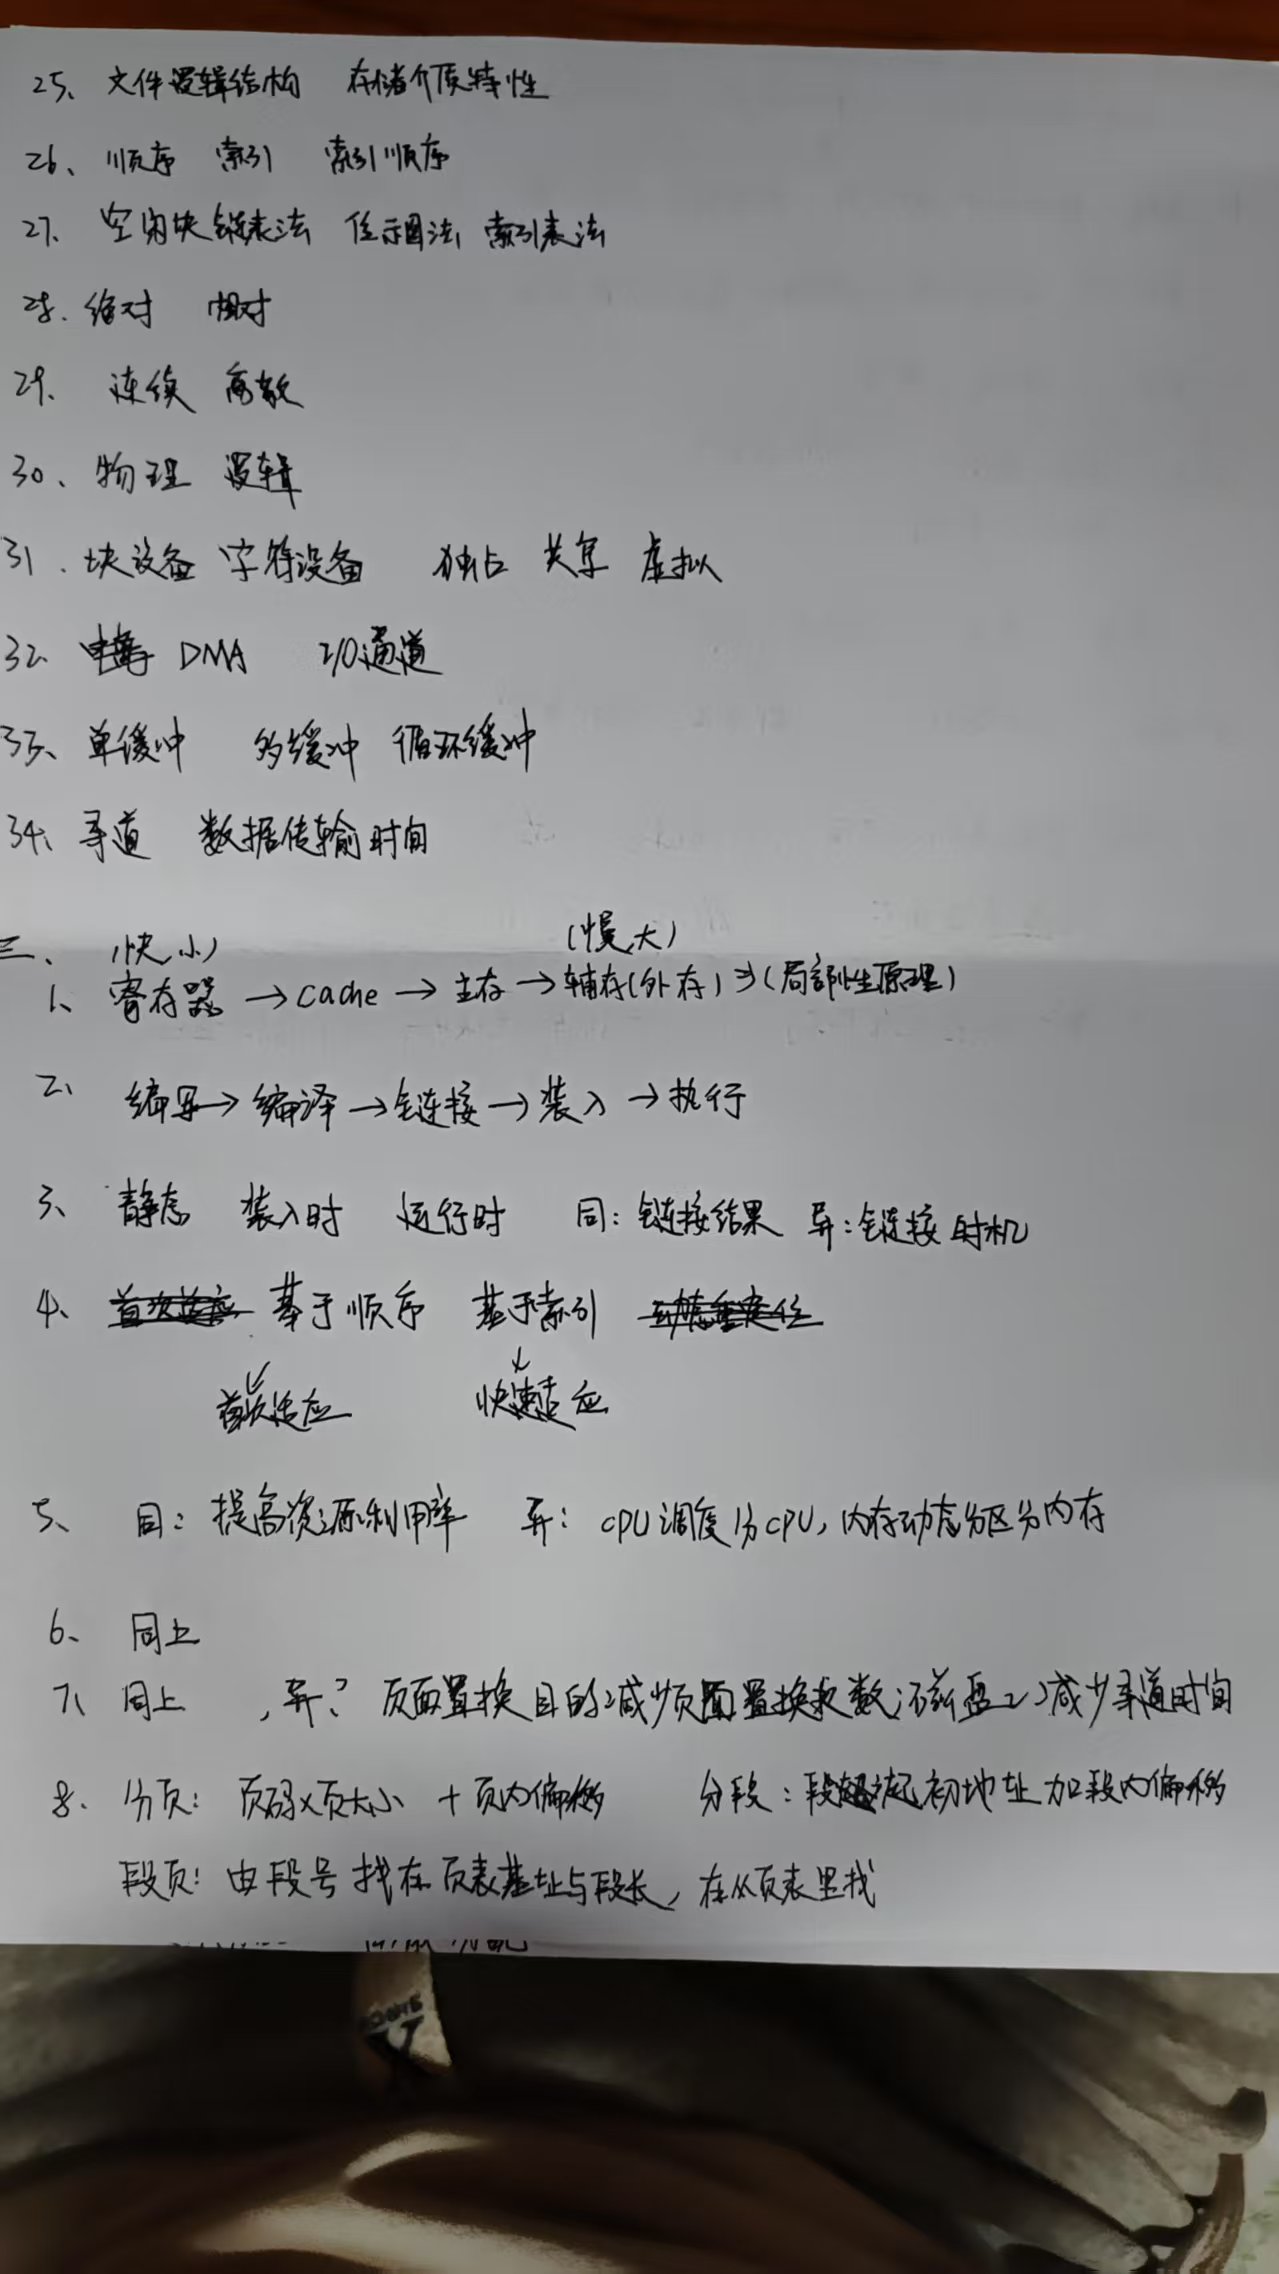 25、文件逻辑结构 存储介质特性
26、顺序 索引 索引顺序
27、空闲块链表法 位示图法 索引表法
28.绝对 相对
29、连续 离散
30、物理 逻辑
31.块设备 字符设备 独占 共享 虚拟
32、中断 DMA I/O通道
33、单缓冲 多缓冲 循环缓冲
34、寻道 数据传输时间
三、(快、小) (慢、大)
1、寄存器→cache→主存→辅存(外存)⇒(局部性原理)
2、编写→编译→链接→装入→执行
3、静态 装入时 运行时 同:链接结果 异:链接时机
4、首次适应 基于顺序 基于索引 动态重定位
首次适应 快速适应
5、同:提高资源利用率 异:CPU调度分CPU,内存动态分区分内存
6、同上
7、同上,异:页面置换目的减少页面置换次数;磁盘减少寻道时间
8、分页:页码×页大小+页内偏移 分段:段起初地址加段内偏移
段页:由段号找在页表基址与段长,在从页表里找